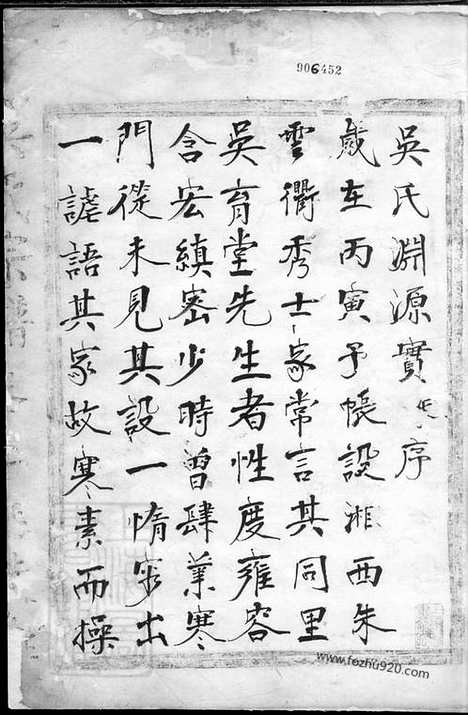 906452
吳氏淵源實錄序
歲在丙寅予帳設湘西朱
雲衢秀士家常言其同里
吳育堂先生者性度雍容
含宏縝密少時曾肆業寒
門從未見其設一惰容出
一謔語其家故寒素而操
www.fozhu920.com